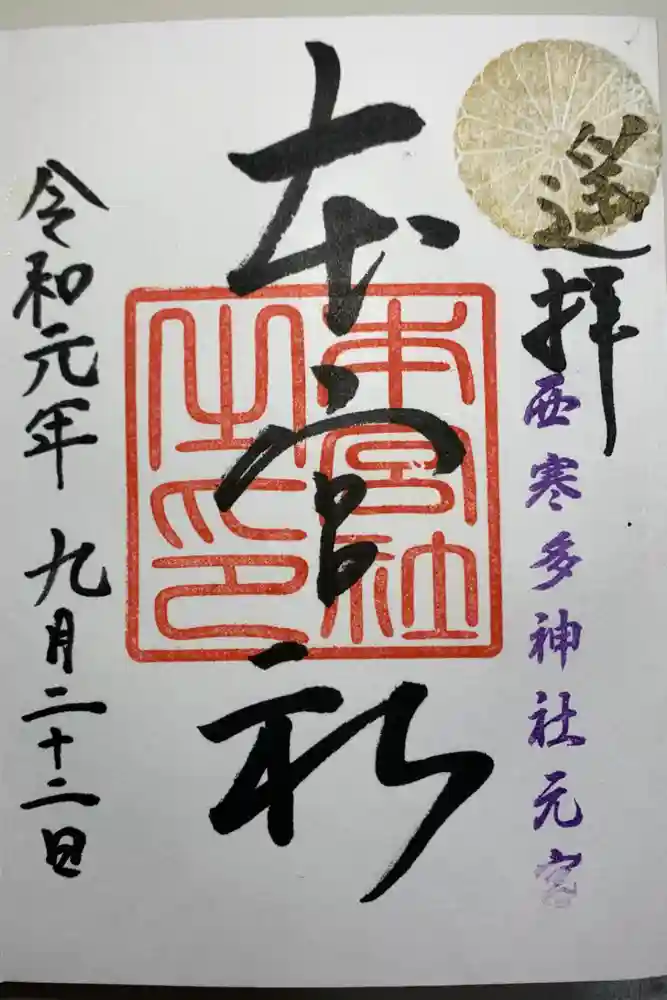 遥拝
西寒多神社元宮
本宮社
本宮社之印
令和元年 九月二十二日